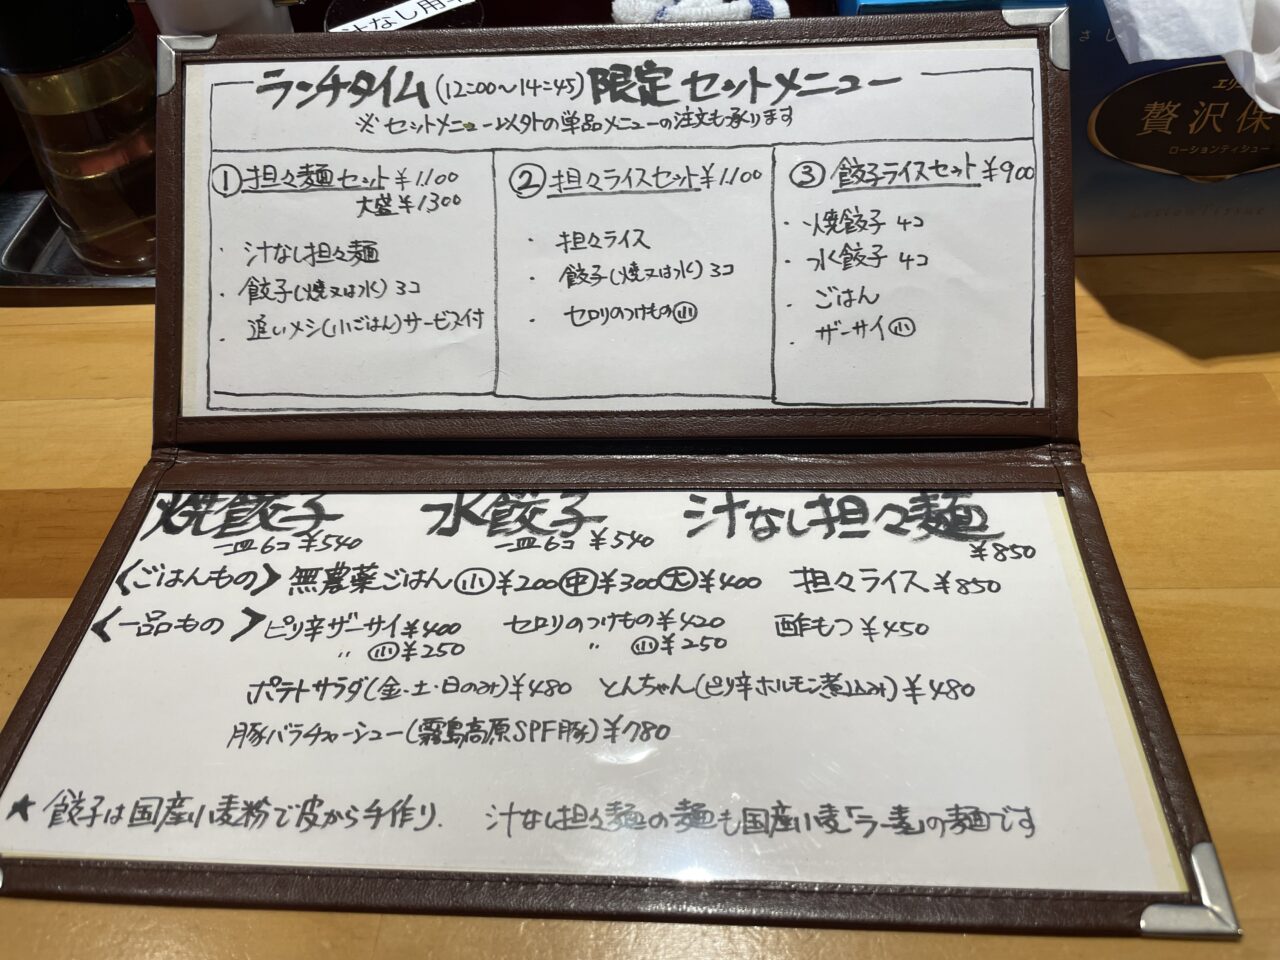 汁なし用
ランチタイム(12:00〜14:45)限定セットメニュー
※セットメニュー以外の単品メニューの注文も承ります
①担々麺セット¥1,100
大盛¥1300
・汁なし担々麺
・餃子(焼又は水)3コ
・追いメシ(小ごはん)サービス付
②担々ライスセット¥1,100
・担々ライス
・餃子(焼又は水)3コ
・セロリのつけもの㊥
③餃子ライスセット¥900
・焼餃子 4コ
・水餃子 4コ
・ごはん
・ザーサイ㊙
焼餃子 水餃子 汁なし担々麺
一皿6コ¥540 一皿6コ¥540 ¥850
〈ごはんもの〉無農薬ごはん(小)¥200(中)¥300(大)¥400 担々ライス¥850
〈一品もの〉ピリ辛ザーサイ¥400 セロリのつけもの¥420 酢もつ¥450
〃(小)¥250 〃(小)¥250
ポテトサラダ(金・土・日のみ)¥480 とんちゃん(ピリ辛ホルモン煮込み)¥480
豚バラチャーシュー(霧島高原SPF豚)¥780
★餃子は国産小麦粉で皮から手作り. 汁なし担々麺の麺も国産小麦「ラー麦」の麺です
贅沢保
ローションティシュー